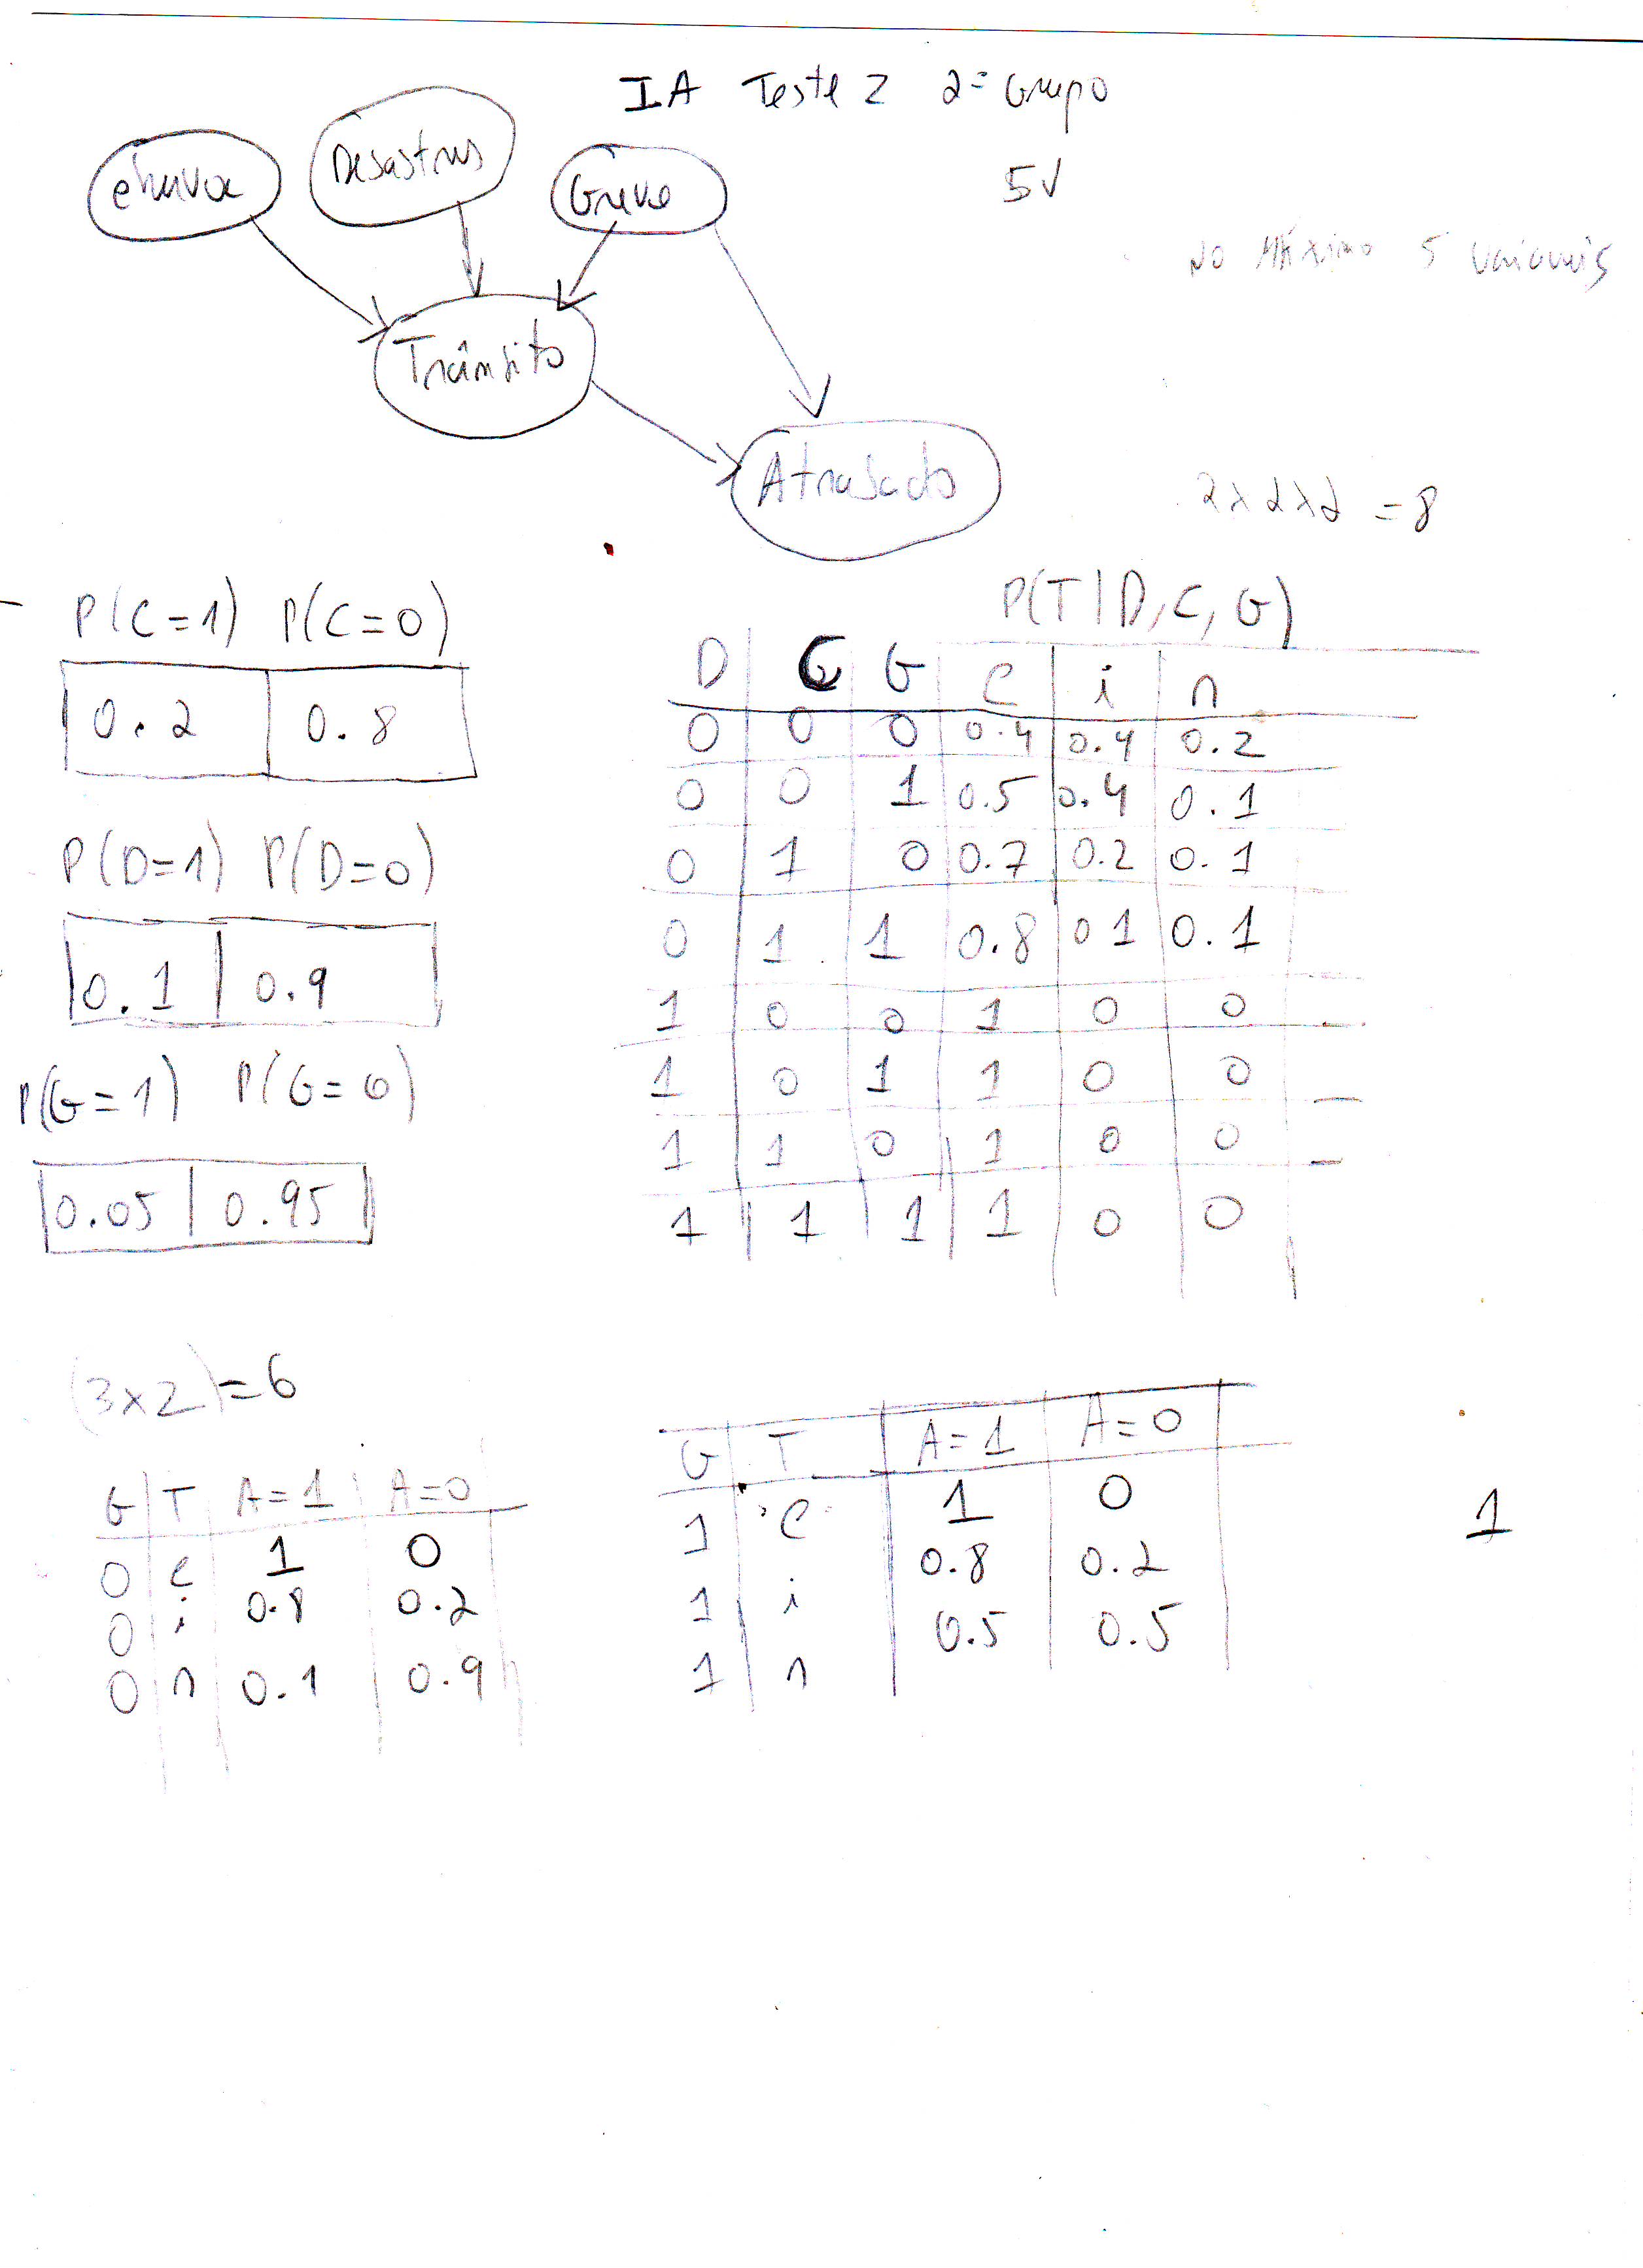 IA Teste 2 2º Grupo
Chuva Desastres Greve
5V
No Máximo 5 variaveis
Trânsito
Atrasado
2 x 2 x 2 = 8
P(C=1) P(C=0)
0.2 0.8
P(D=1) P(D=0)
0.1 0.9
P(G=1) P(G=0)
0.05 0.95
P(T|D,C,G)
D C G C i n
0 0 0 0.4 0.4 0.2
0 0 1 0.5 0.4 0.1
0 1 0 0.7 0.2 0.1
0 1 1 0.8 0 1 0.1
1 0 0 1 0 0
1 0 1 1 0 0
1 1 0 1 0 0
1 1 1 1 0 0
(3x2)=6
G T A=1 A=0
0 c 1 0
0 i 0.8 0.2
0 n 0.1 0.9
G T A=1 A=0
1 C 1 0
1 i 0.8 0.2
1 n 0.5 0.5
1